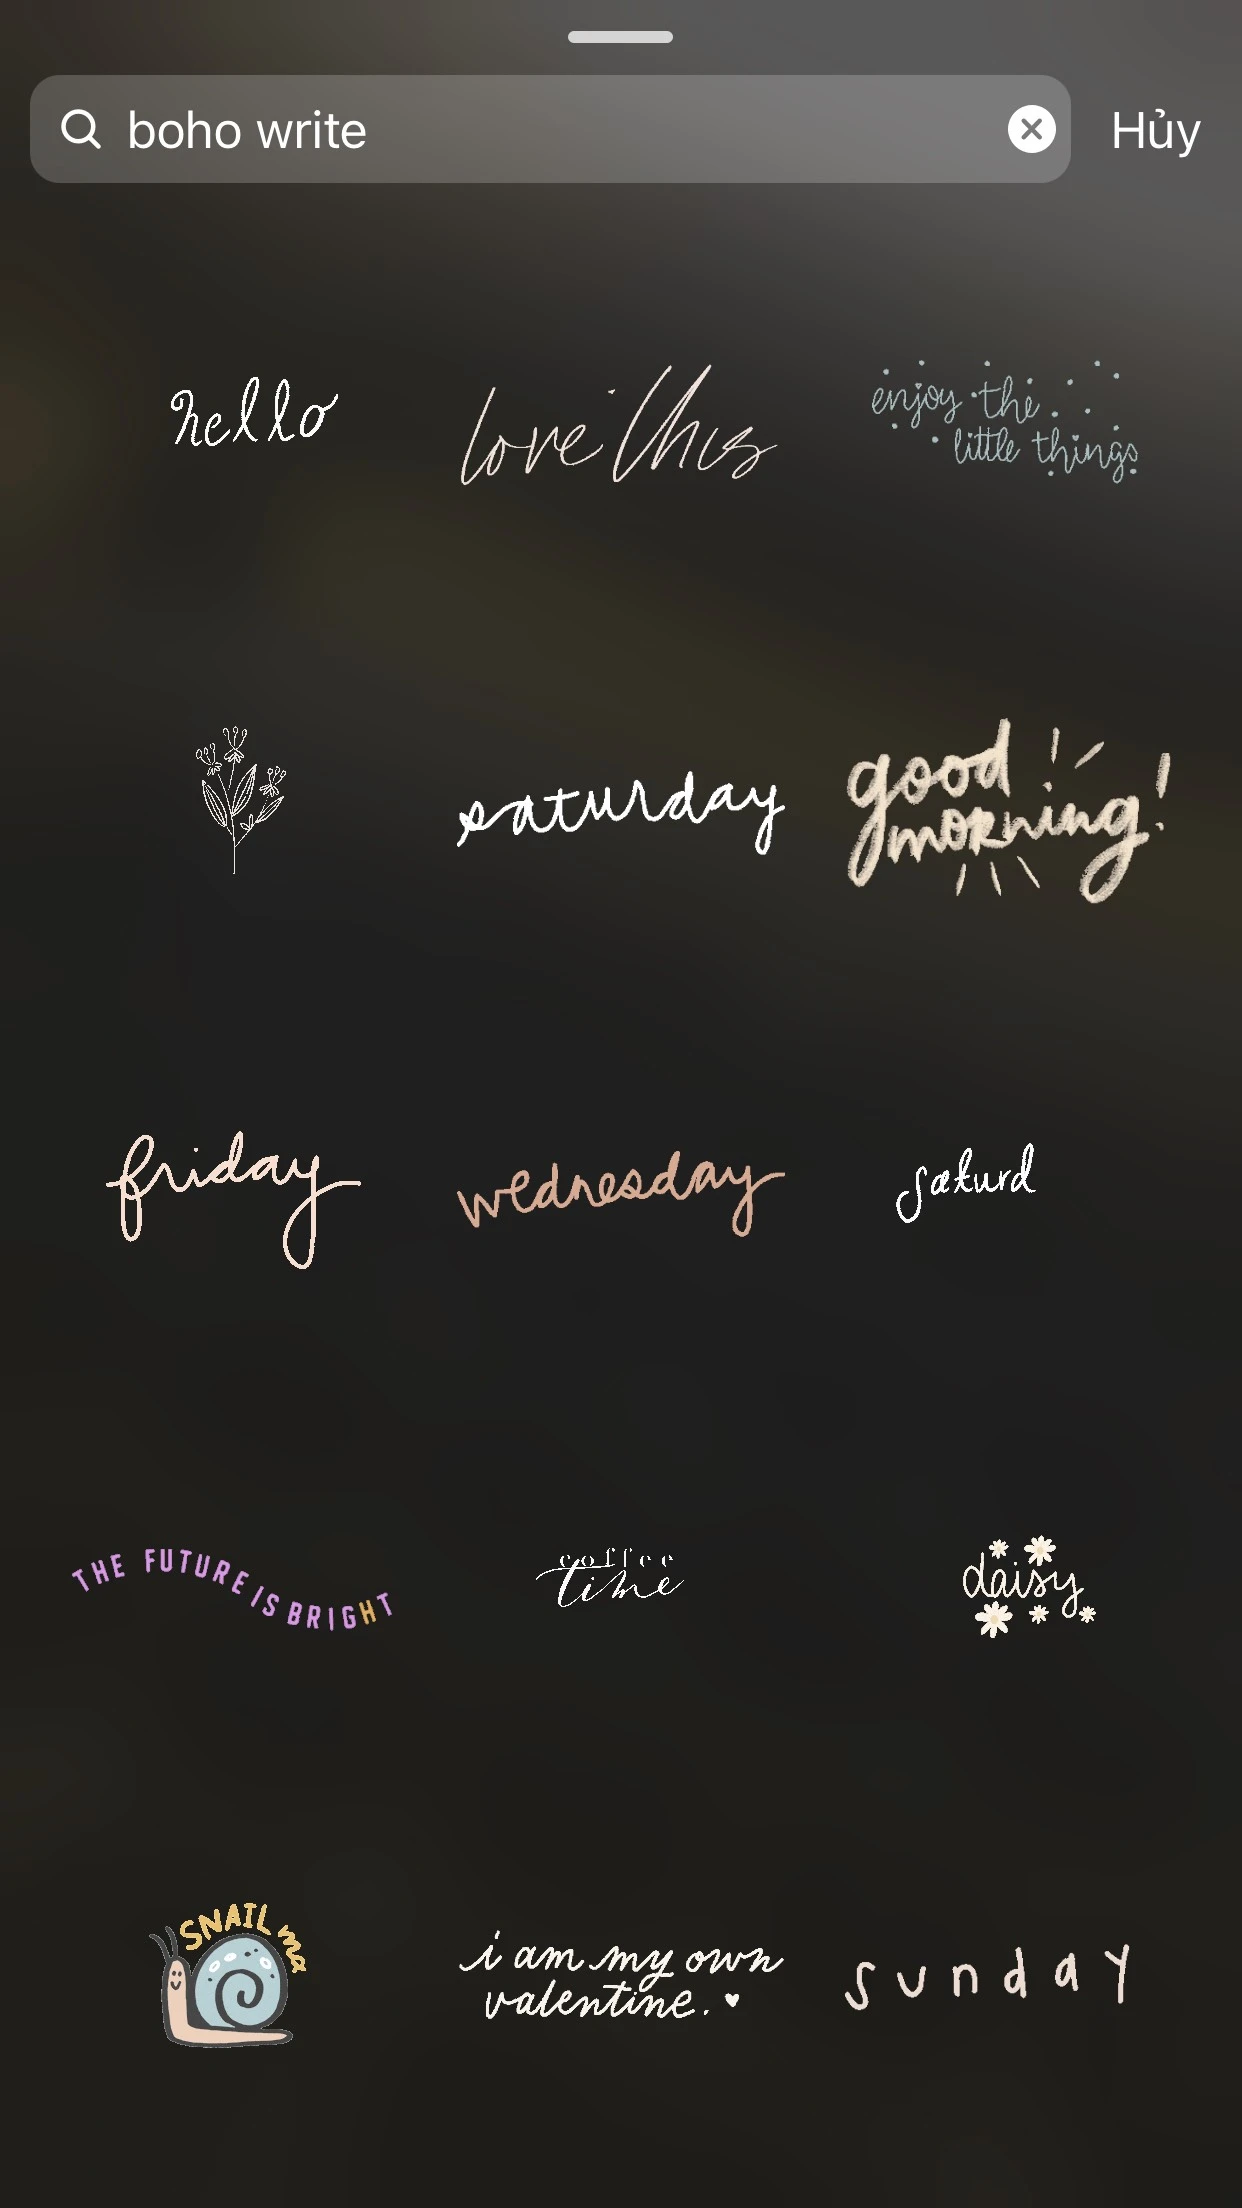 boho write
Hủy
hello
love this
enjoy the
little things
saturday
good
morning!
friday
wednesday
saturd
THE FUTURE IS BRIGHT
coffee
time
daisy
SNAIL ma
i am my own
valentine.
sunday